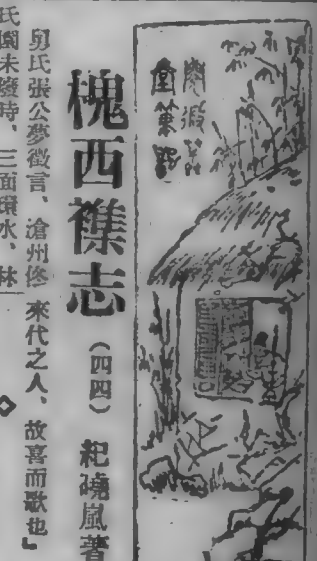 閱微草
堂筆記
槐西襍志
（四四）
紀曉嵐著
舅氏張公夢徵言、滄州佟
氏園未廢時、三面環水、林
來代之人、故喜而歌也』